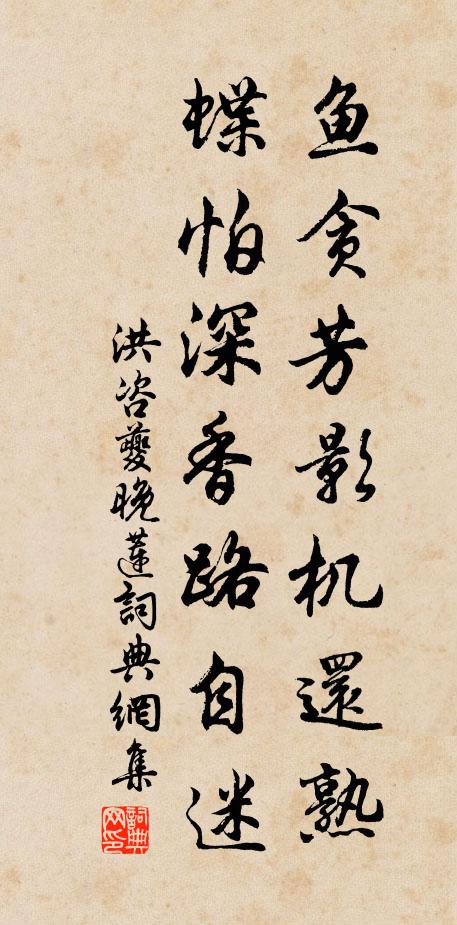 鱼贪芳影机還熟
蝶怕深香路自迷
洪咨夔晚蓮詞典網集
詞典网印